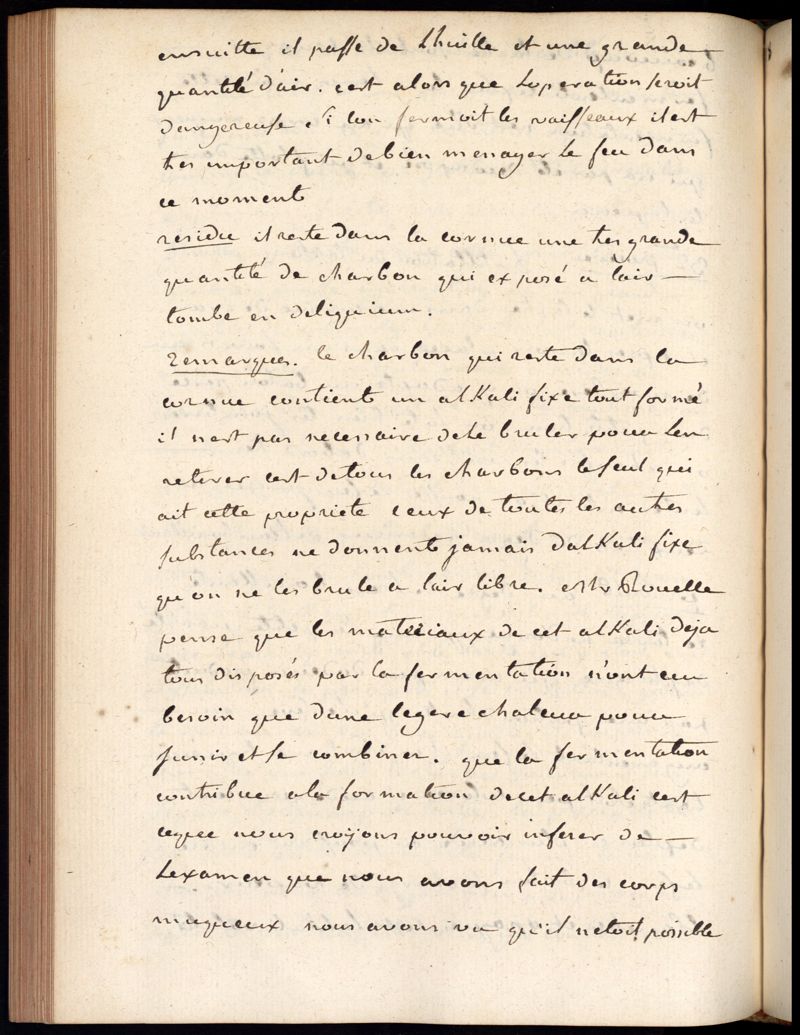 ensuitte il passe de Lhuille et une grande
quantité d'air. cest alors que Loperation seroit
dangereuse si lon fermoit les vaisseaux il est
tres important de bien menager le feu dans
ce moment
residu il reste dans la cornue une tres grande
quantité de charbon qui exposé a lair —
tombe en deliquium.
remarques. le charbon qui reste dans la
cornue contient un alkali fixe tout formé
il nest pas necessaire de le bruler pour Len
retirer cest de tous les charbons le seul qui
ait cette proprieté ceux de toutes les autres
substances ne donnent jamais dalkali fixe
qu'on ne les brule a lair libre. Mr Rouelle
pense que les materiaux de cet alkali deja
tous disposés par la fermentation n'ont eu
besoin que dune legere chaleur pour
sunir et se combiner. que la fermentation
contribue a la formation de cet alkali cest
ceque nous croyons pouvoir inferer de —
Lexamen que nous avons fait des corps
muqueux nous avons vu qu'il netoit possible